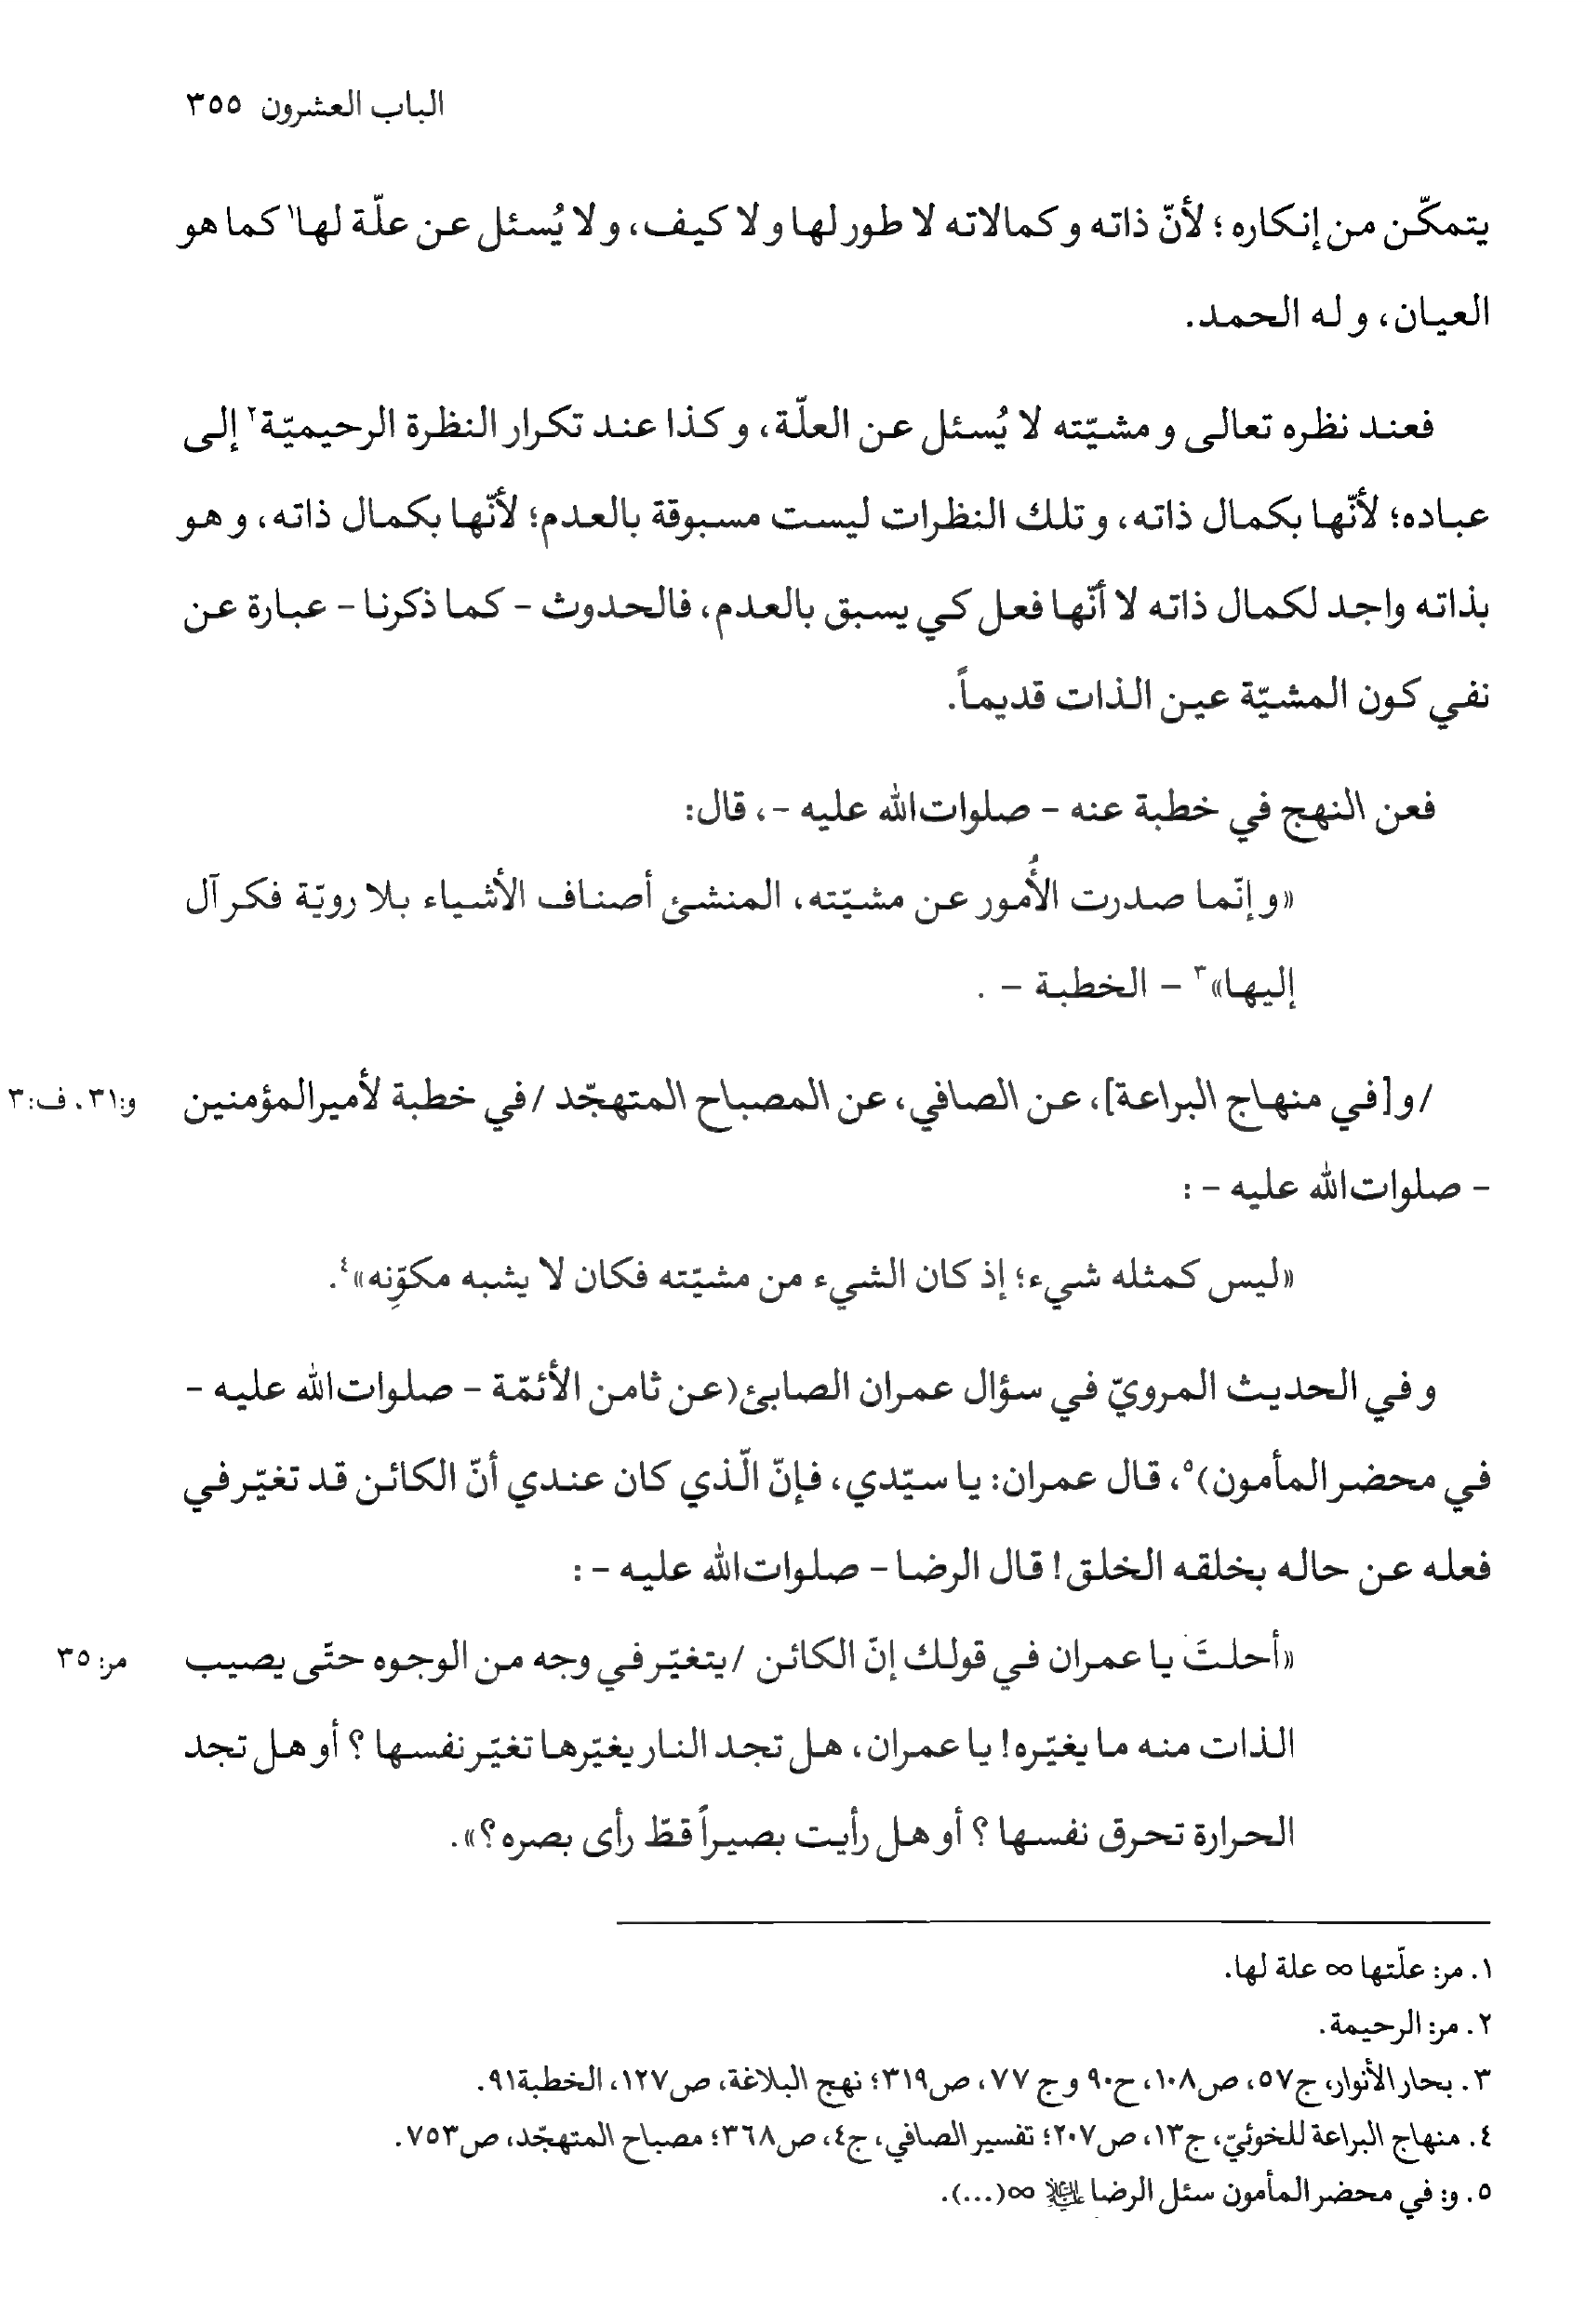 الباب العشرون ٣٥٥
يتمكّن من إنكاره؛ لأنّ ذاته و كمالاته لا طور لها و لا كيف، و لا يُسئل عن علّة لها١ كما هو
العيان، و له الحمد.
فعند نظره تعالى و مشيّته لا يُسئل عن العلّة، و كذا عند تكرار النظرة الرحيميّة٢ إلى
عباده؛ لأنّها بكمال ذاته، و تلك النظرات ليست مسبوقة بالعدم؛ لأنّها بكمال ذاته، و هو
بذاته واجد لكمال ذاته لا أنّها فعل كي يسبق بالعدم، فالحدوث - كما ذكرنا - عبارة عن
نفي كون المشيّة عين الذات قديماً.
فعن النهج في خطبة عنه - صلوات‌الله عليه -، قال:
«و إنّما صدرت الأُمور عن مشيّته، المنشئ أصناف الأشياء بلا رويّة فكر آل
إليها»٣ - الخطبة - .
/ و [في منهاج البراعة]، عن الصافي، عن المصباح المتهجّد / في خطبة لأميرالمؤمنين و:٣١. ف:٣
- صلوات‌الله عليه - :
«ليس كمثله شيء؛ إذ كان الشيء من مشيّته فكان لا يشبه مكوّنِه»٤.
و في الحديث المرويّ في سؤال عمران الصابئ (عن ثامن الأئمّة - صلوات‌الله عليه -
في محضر المأمون)٥، قال عمران: يا سيّدي، فإنّ الّذي كان عندي أنّ الكائن قد تغيّر في
فعله عن حاله بخلقه الخلق! قال الرضا - صلوات‌الله عليه - :
«أحلتَ يا عمران في قولك إنّ الكائن / يتغيّر في وجه من الوجوه حتّى يصيب مر: ٣٥
الذات منه ما يغيّره! يا عمران، هل تجد النار يغيّرها تغيّر نفسها؟ أو هل تجد
الحرارة تحرق نفسها؟ أو هل رأيت بصيراً قطّ رأى بصره؟».
١. مر: علّتها ∞ علة لها.
٢. مر: الرحيمة.
٣. بحار الأنوار، ج٥٧، ص١٠٨، ح٩٠ و ج ٧٧، ص٣١٩؛ نهج البلاغة، ص١٢٧، الخطبة٩١.
٤. منهاج البراعة للخوئيّ، ج١٣، ص٢٠٧؛ تفسير الصافي، ج٤، ص٣٦٨؛ مصباح المتهجّد، ص٧٥٣.
٥. و: في محضر المأمون سئل الرضا عليه‌السلام ∞(...).